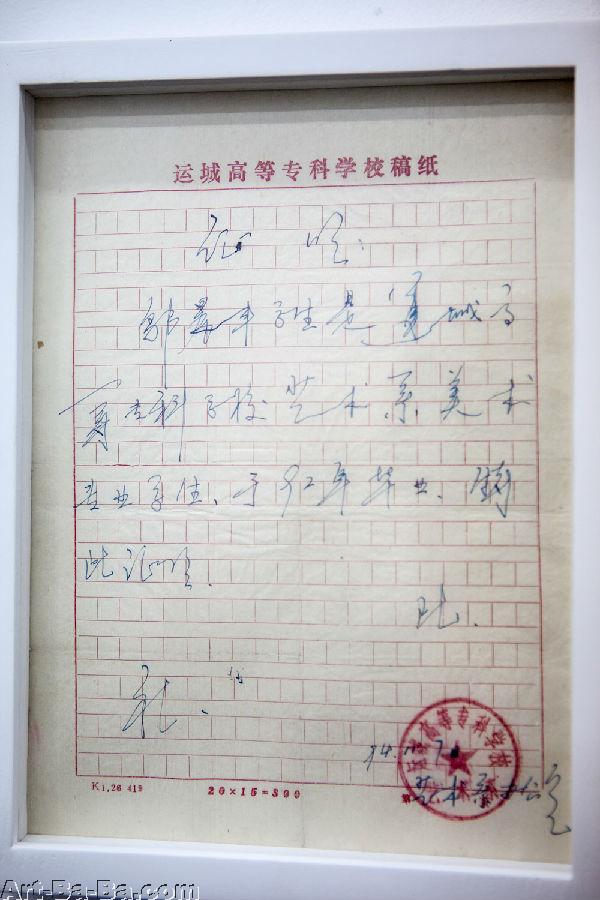 运城高等专科学校稿纸
证 明：
学生是运城高
等专科学校艺术系美术
专业学生、于92年毕业、特
此证明.
此.
礼.
94.
艺术系办公室
运城高等专科学校
K1.26 419
20×15=300
Art-Ba-Ba.com